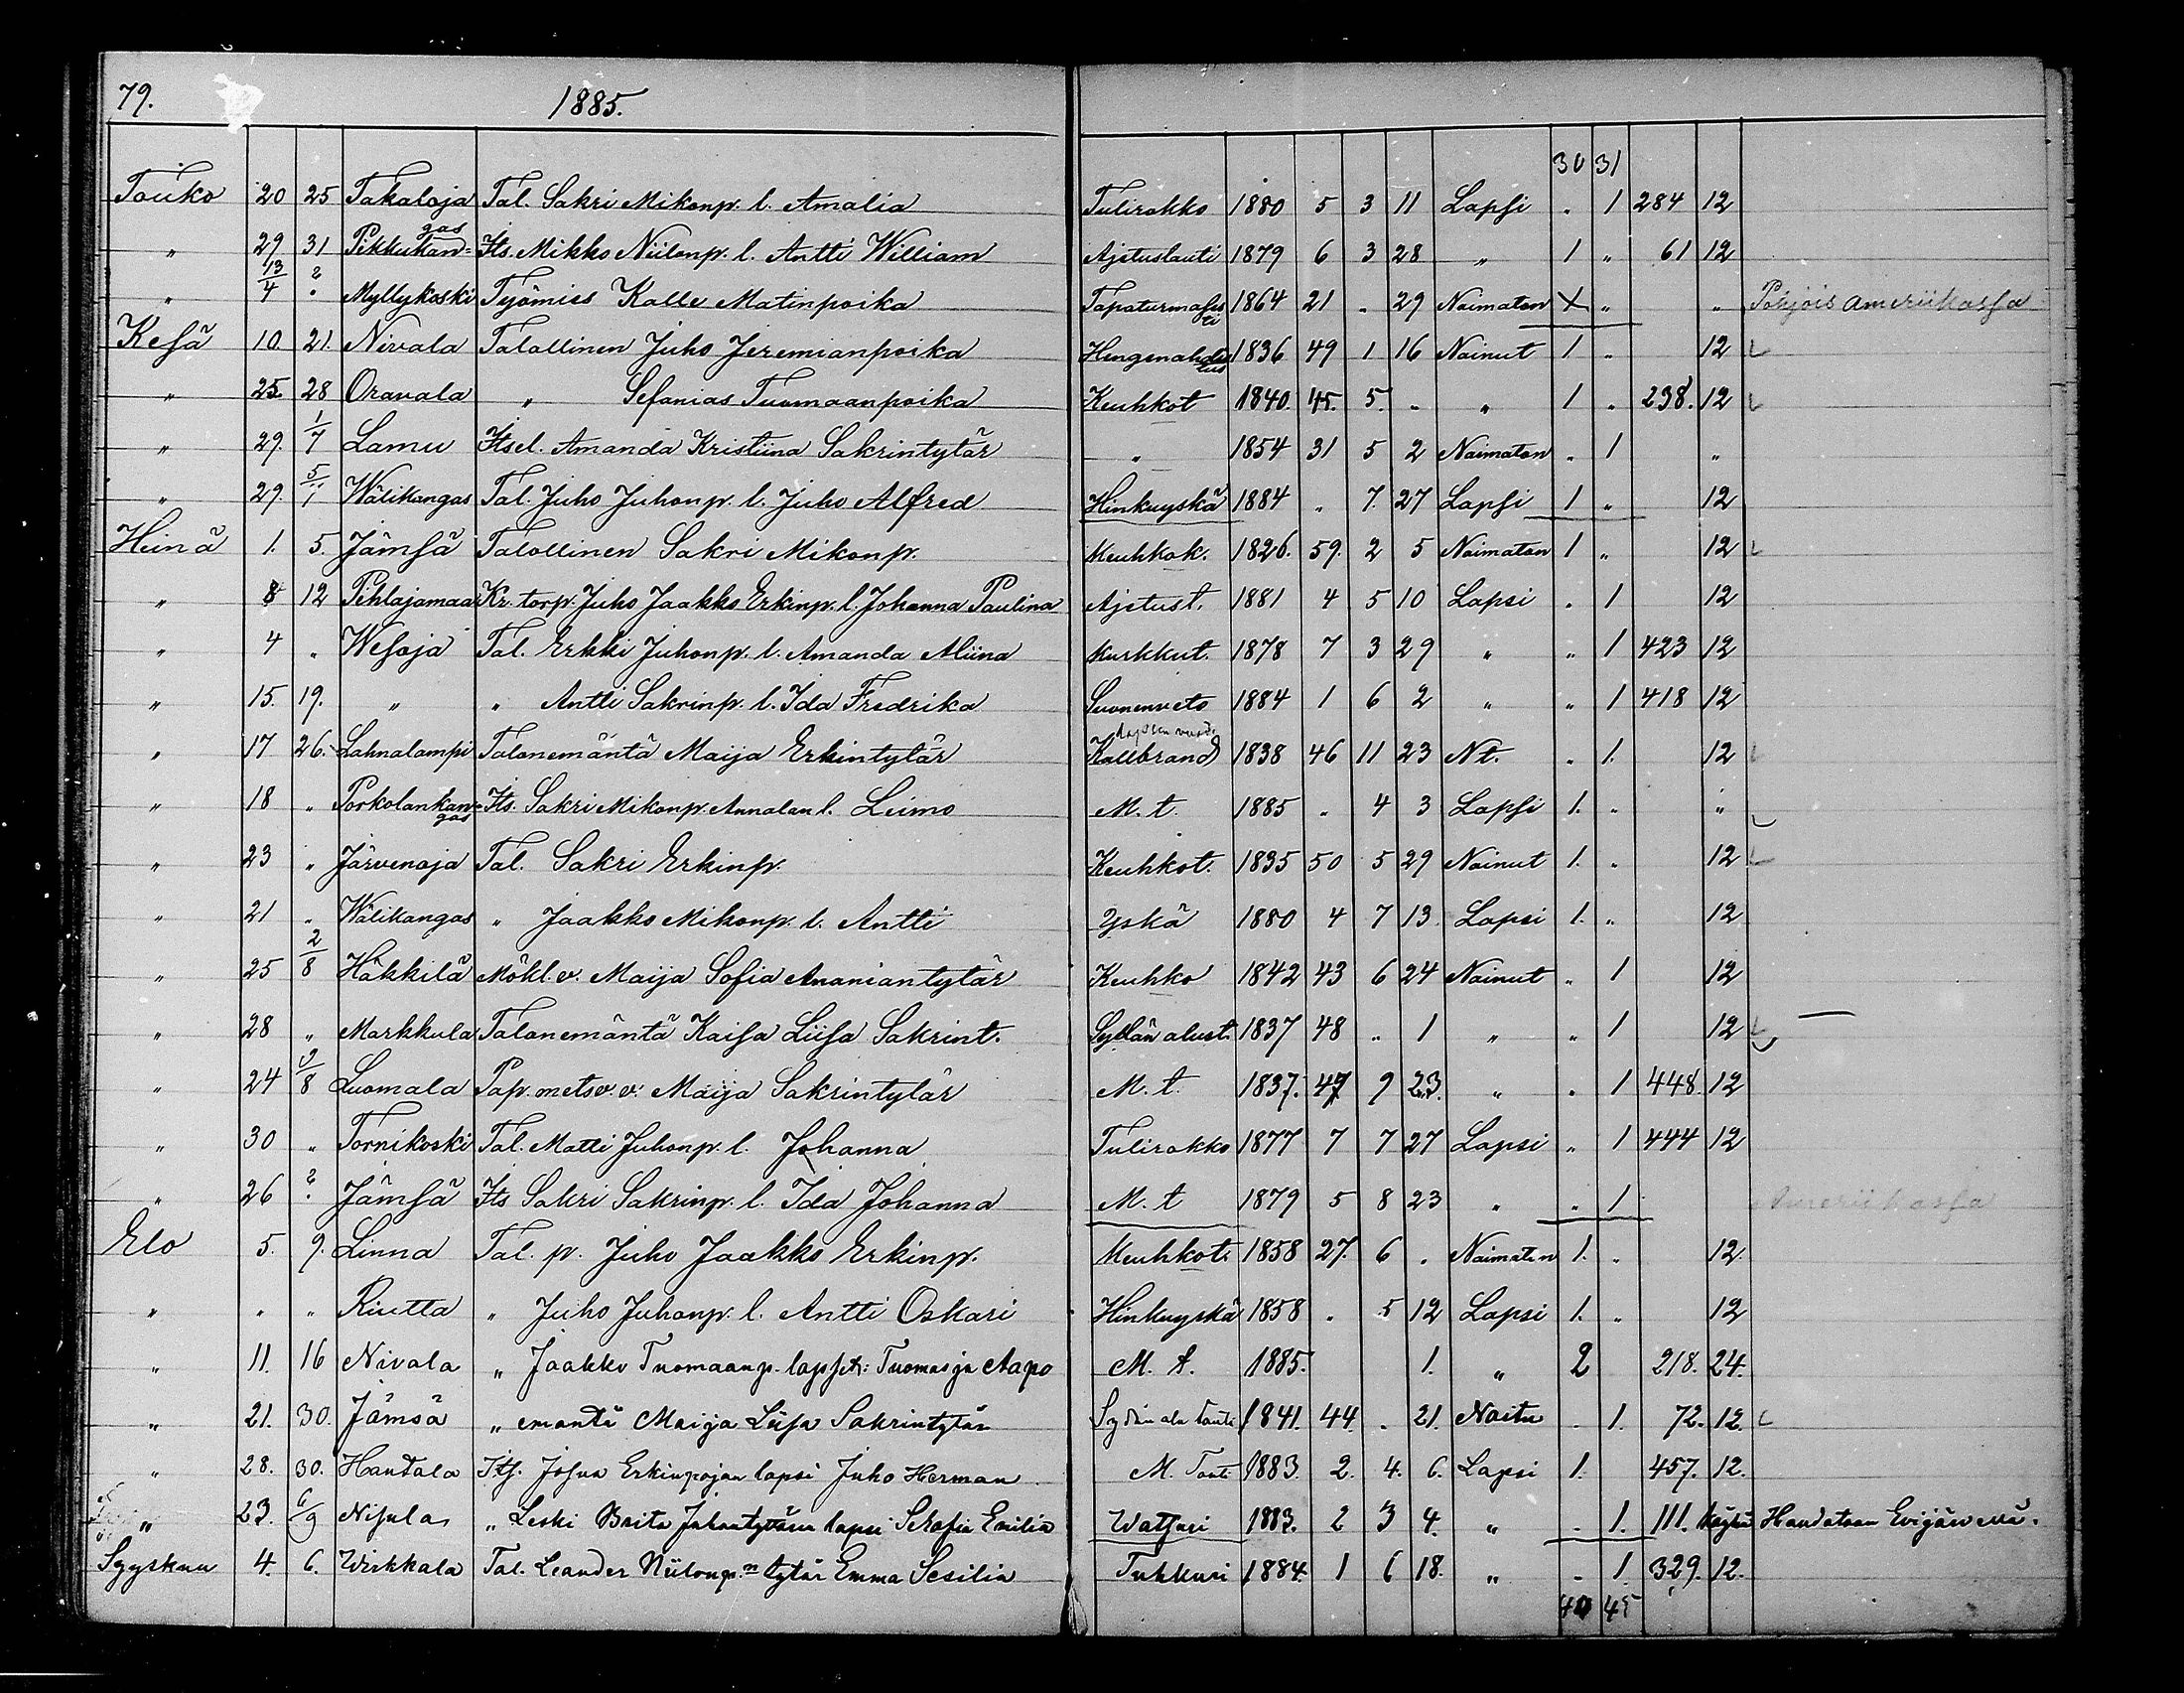 79.
1885.
30 31
Touko 20 25 Takaloja Tal. Sakri Mikonp. l. Amalia Tulirokko 1880 5 3 11 Lapsi „ 1 284 12
„ 29 31 Pikkukan=gas Its. Mikko Niilonp. l. Antti William Ajetustauti 1879 6 3 28 „ 1 „ 61 12
„ 13/4 ? Myllykoski Työmies Kalle Matinpoika Tapaturmasesti 1864 21 „ 29 Naimaton X „ „ Pohjois Ameriikassa
Kesä 10. 21. Nivala Talollinen Juho Jeremianpoika Hengenahdistus 1836 49 1 16 Nainut 1 „ 12
„ 25. 28 Oravala „ Sefanias Tuomaanpoika Keuhkot 1840. 45. 5. „ „ 1 „ 238. 12
„ 29. 1/7 Lamu Itsel. Amanda Kristiina Sakrintytär „ 1854 31 5 2 Naimaton „ 1 „
„ 29. 5/„ Wälikangas Tal. Juho Juhonp. l. Juho Alfred Hinkuyskä 1884 „ 7. 27 Lapsi 1 „ 12
Heinä 1. 5. Jämsä Talollinen Sakri Mikonp. Keuhkok. 1826. 59. 2 5 Naimaton 1 „ 12
„ 8 12 Pihlajamaa Kr. torp. Juho Jaakko Erkinp. l. Johanna Paulina Ajetust. 1881 4 5 10 Lapsi „ 1 12
„ 4 „ Wesoja Tal. Erkki Juhonp. l. Amanda Miina Kurkkut. 1878 7 3 29 „ „ 1 423 12
„ 15. 19. „ „ Antti Sakrinp. l. Ida Fredrika Suonenveto 1884 1 6 2 „ „ 1 418 12
„ 17 26. Lahnalampi Talonemäntä Maija Erkintytär Kallbrand 1838 46 11 23 Nt. „ 1. 12
„ 18 „ Porkolankan=gas Its. Sakri Mikonp. Annalan l. Leimo M. t. 1885 „ 4 3 Lapsi 1. „ „
„ 23 „ Järvenoja Tal. Sakri Erkinp. Keuhkot. 1835 50 5 29 Nainut 1. „ 12
„ 21 „ Wälikangas „ Jaakko Mikonp. l. Antti Yskä 1880 4 7 13 Lapsi 1. „ 12
„ 25 2/8 Häkkilä Mökl. v. Maija Sofia Ananiantytär Keuhko 1842 43 6 24 Nainut „ 1 12
„ 28 „ Markkula Talonemäntä Kaisa Liisa Sakrint. Sydän alust. 1837 48 „ 1 „ „ 1 12
„ 24 9/8 Luomala Pap. metsv. v. Maija Sakrintytär M. t. 1837. 47 9 23. „ „ 1 448. 12
„ 30 „ Tornikoski Tal. Matti Juhonp. l. Johanna Tulirokko 1877 7 7 27 Lapsi „ 1 444 12
„ 26 ? Jämsä Its Sakri Sakrinp. l. Ida Johanna M. t 1879 5 8 23 „ „ 1 Ameriikassa
Elo 5. 9. Linna Tal. p. Juho Jaakko Erkinp. Keuhkot. 1858 27. 6 „ Naimaton 1. „ 12.
„ „ „ Riutta „ Juho Juhonp. l. Antti Oskari Hinkuyskä 1858 „ 5 12 Lapsi 1. „ 12
„ 11. 16 Nivala „ Jaakko Tuomaanp. lapset: Tuomas ja Aapo M. t. 1885. 1. „ 2 218. 24.
„ 21. 30. Jämsä „ emäntä Maija Liisa Sakrintytär Sydän ala tauti 1841. 44. „ 21. Naitu „ 1. 72. 12.
„ 28. 30. Hautala Its. Josua Erkinpojan lapsi Juho Herman M. Taut 1883. 2. 4. 6. Lapsi 1. 457. 12.
„ 23. 6/9 Nisula „ Leski Brita Juhontyttären lapsi Serafia Emilia Watsuri 1883. 2 3 4. „ „ 1. 111. Haudataan Evijärvellä.
Syyskuu 4. 6. Wirkkala Tal. Leander Niilonp:n tytär Emma Sesilia Tuhkuri 1884. 1 6 18. „ „ 1 329. 12.
40 45